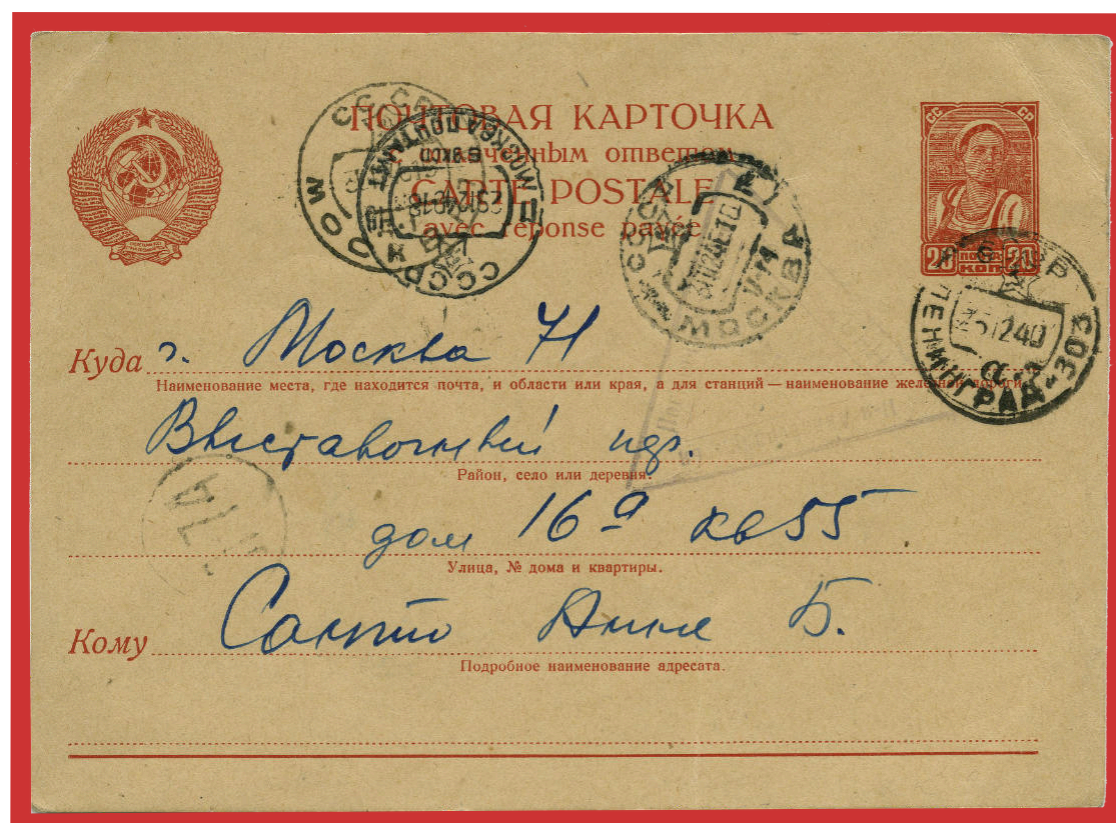 ПОЧТОВАЯ КАРТОЧКА
с оплаченным ответом
CARTE POSTALE
avec réponse payée
СС СР
20 ПОЧТА КОП 20
СССР МОСКВА ПОЧТАМТ
МОСКВА
ЛЕНИНГРАД-303
5 12 40
Куда г. Москва 71
Наименование места, где находится почта, и области или края, а для станций — наименование железной дороги.
Выставочный пер.
Район, село или деревня.
дом 16а кв 55
Улица, № дома и квартиры.
Кому Сакто Анне Б.
Подробное наименование адресата.